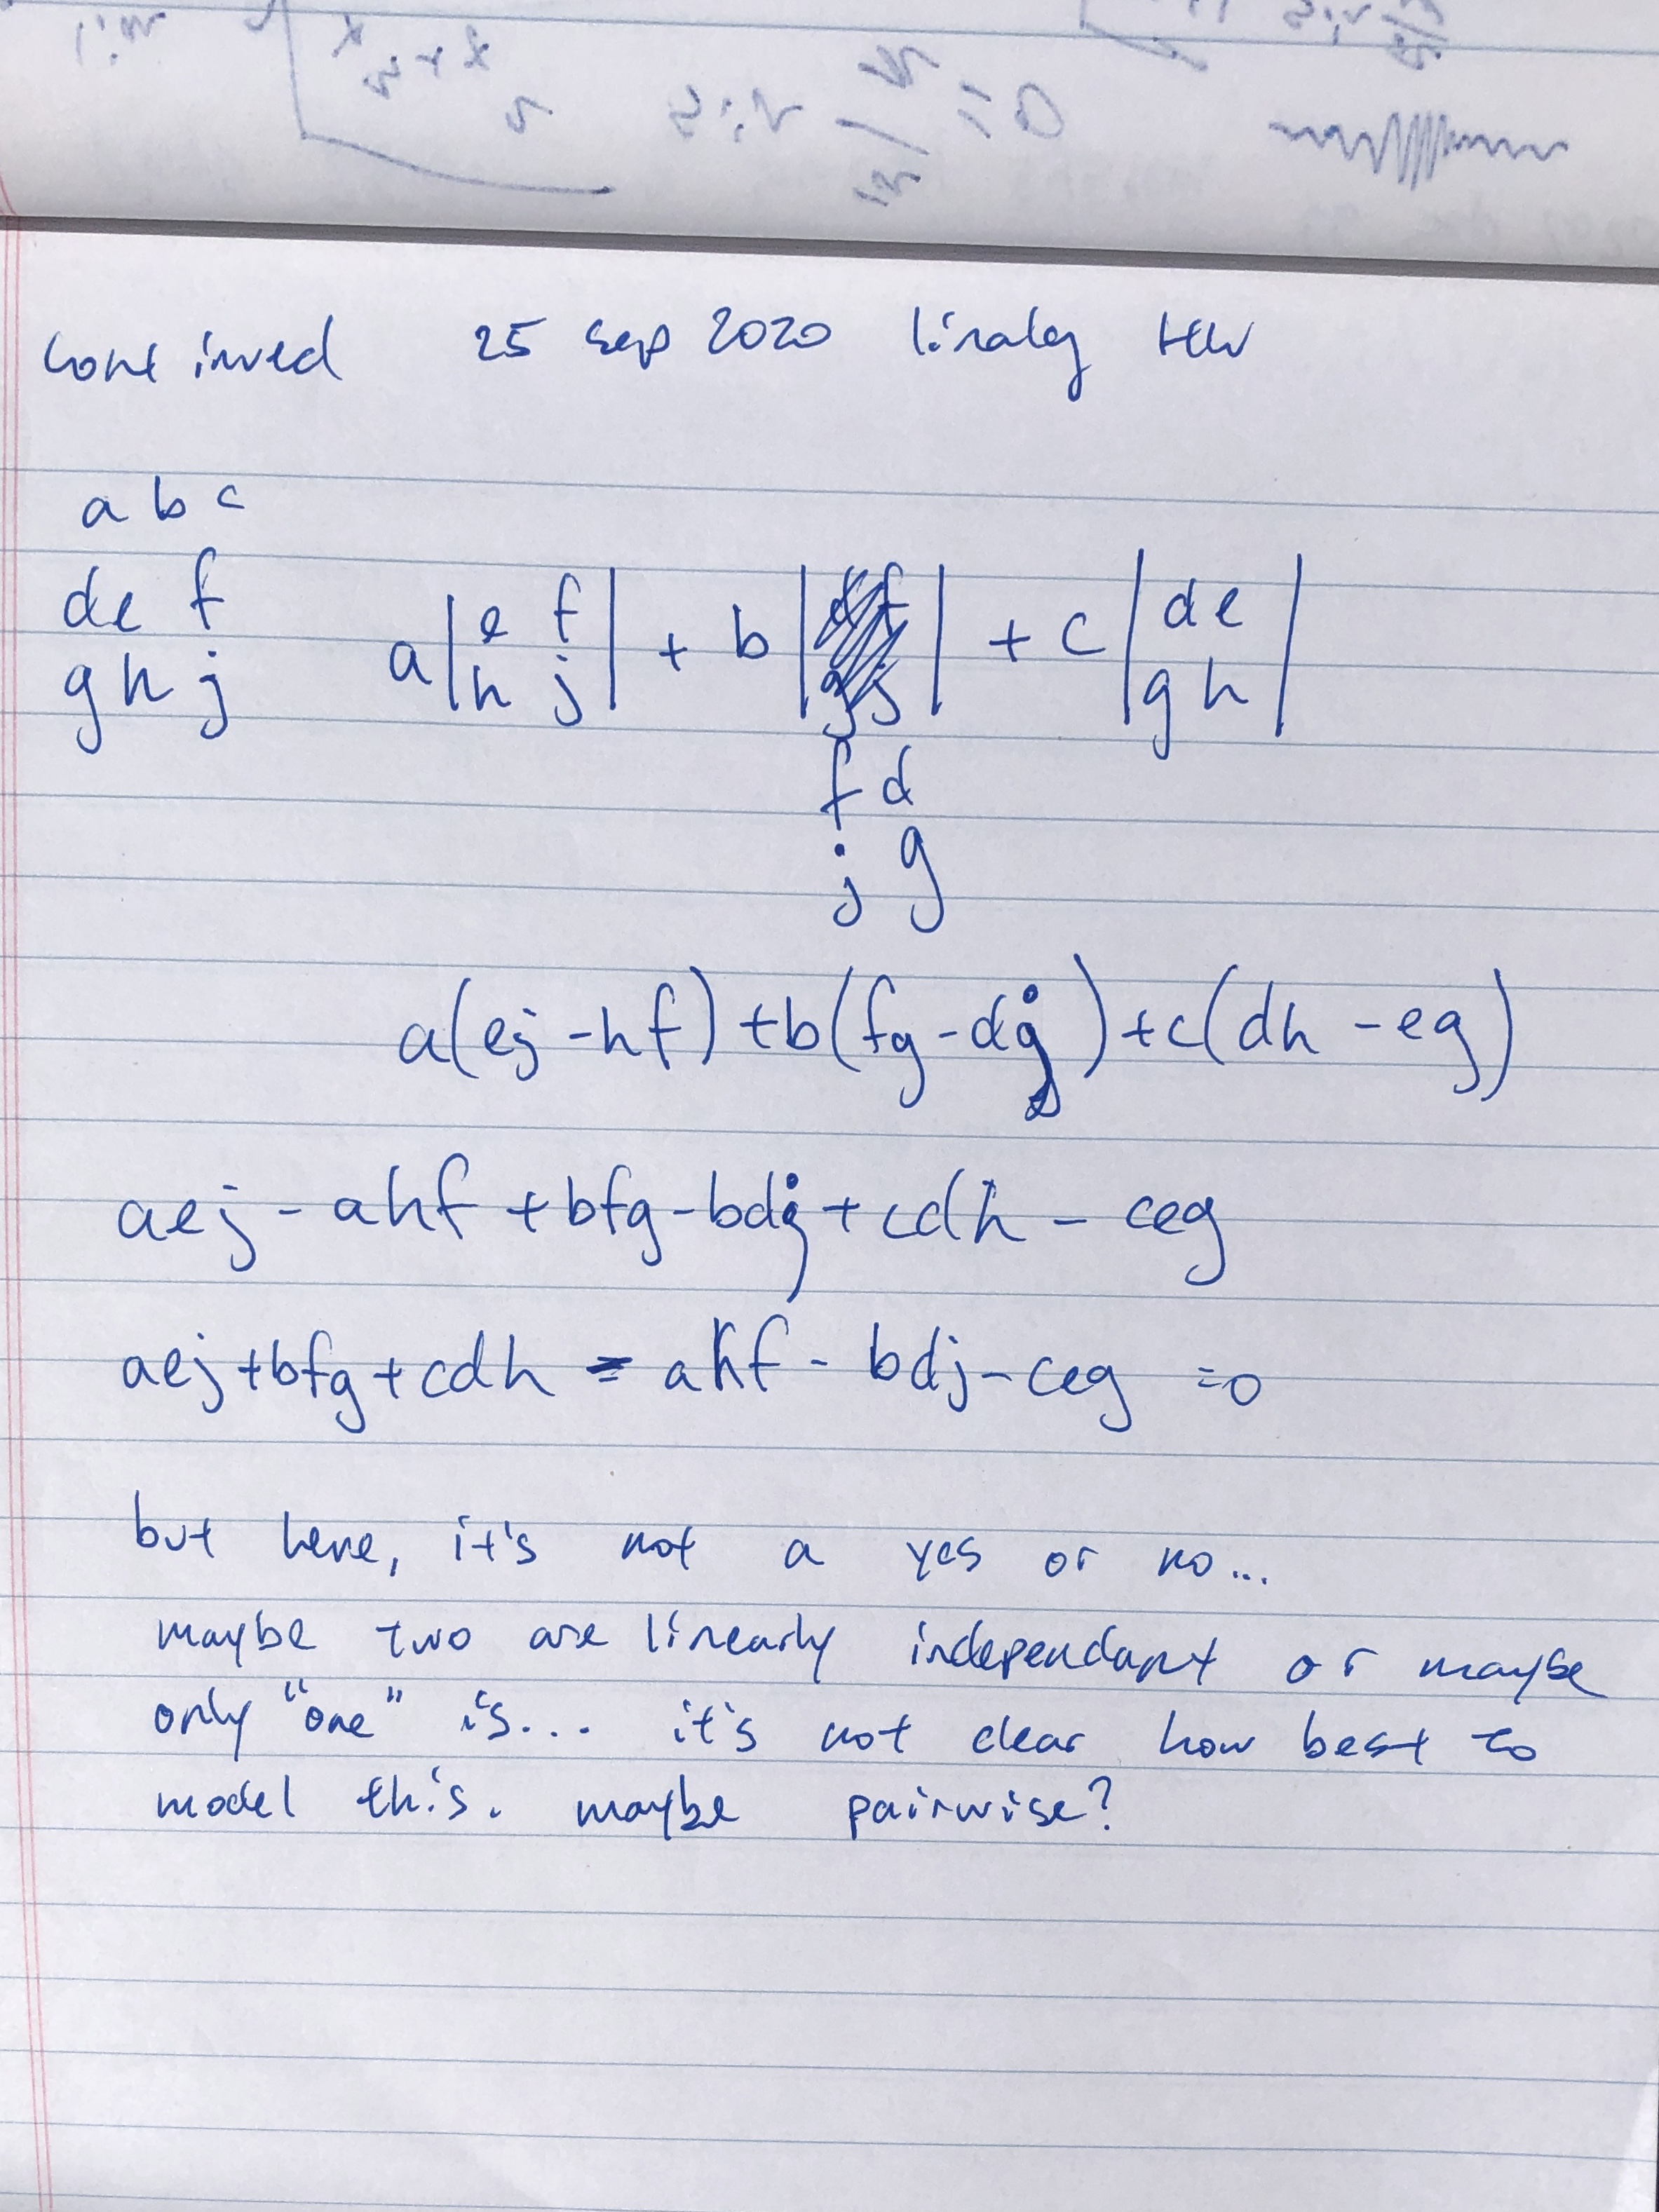 continued 25 sep 2020 linalg HW
a b c
d e f
g h j
a | e f | + b | | + c | d e |
h j g h
f d
j g
a(ej - hf) + b(fg - dj) + c(dh - eg)
aej - ahf + bfg - bdj + cdh - ceg
aej + bfg + cdh - ahf - bdj - ceg = 0
but here, it's not a yes or no...
maybe two are linearly independant or maybe
only "one" is... it's not clear how best to
model this. maybe pairwise?